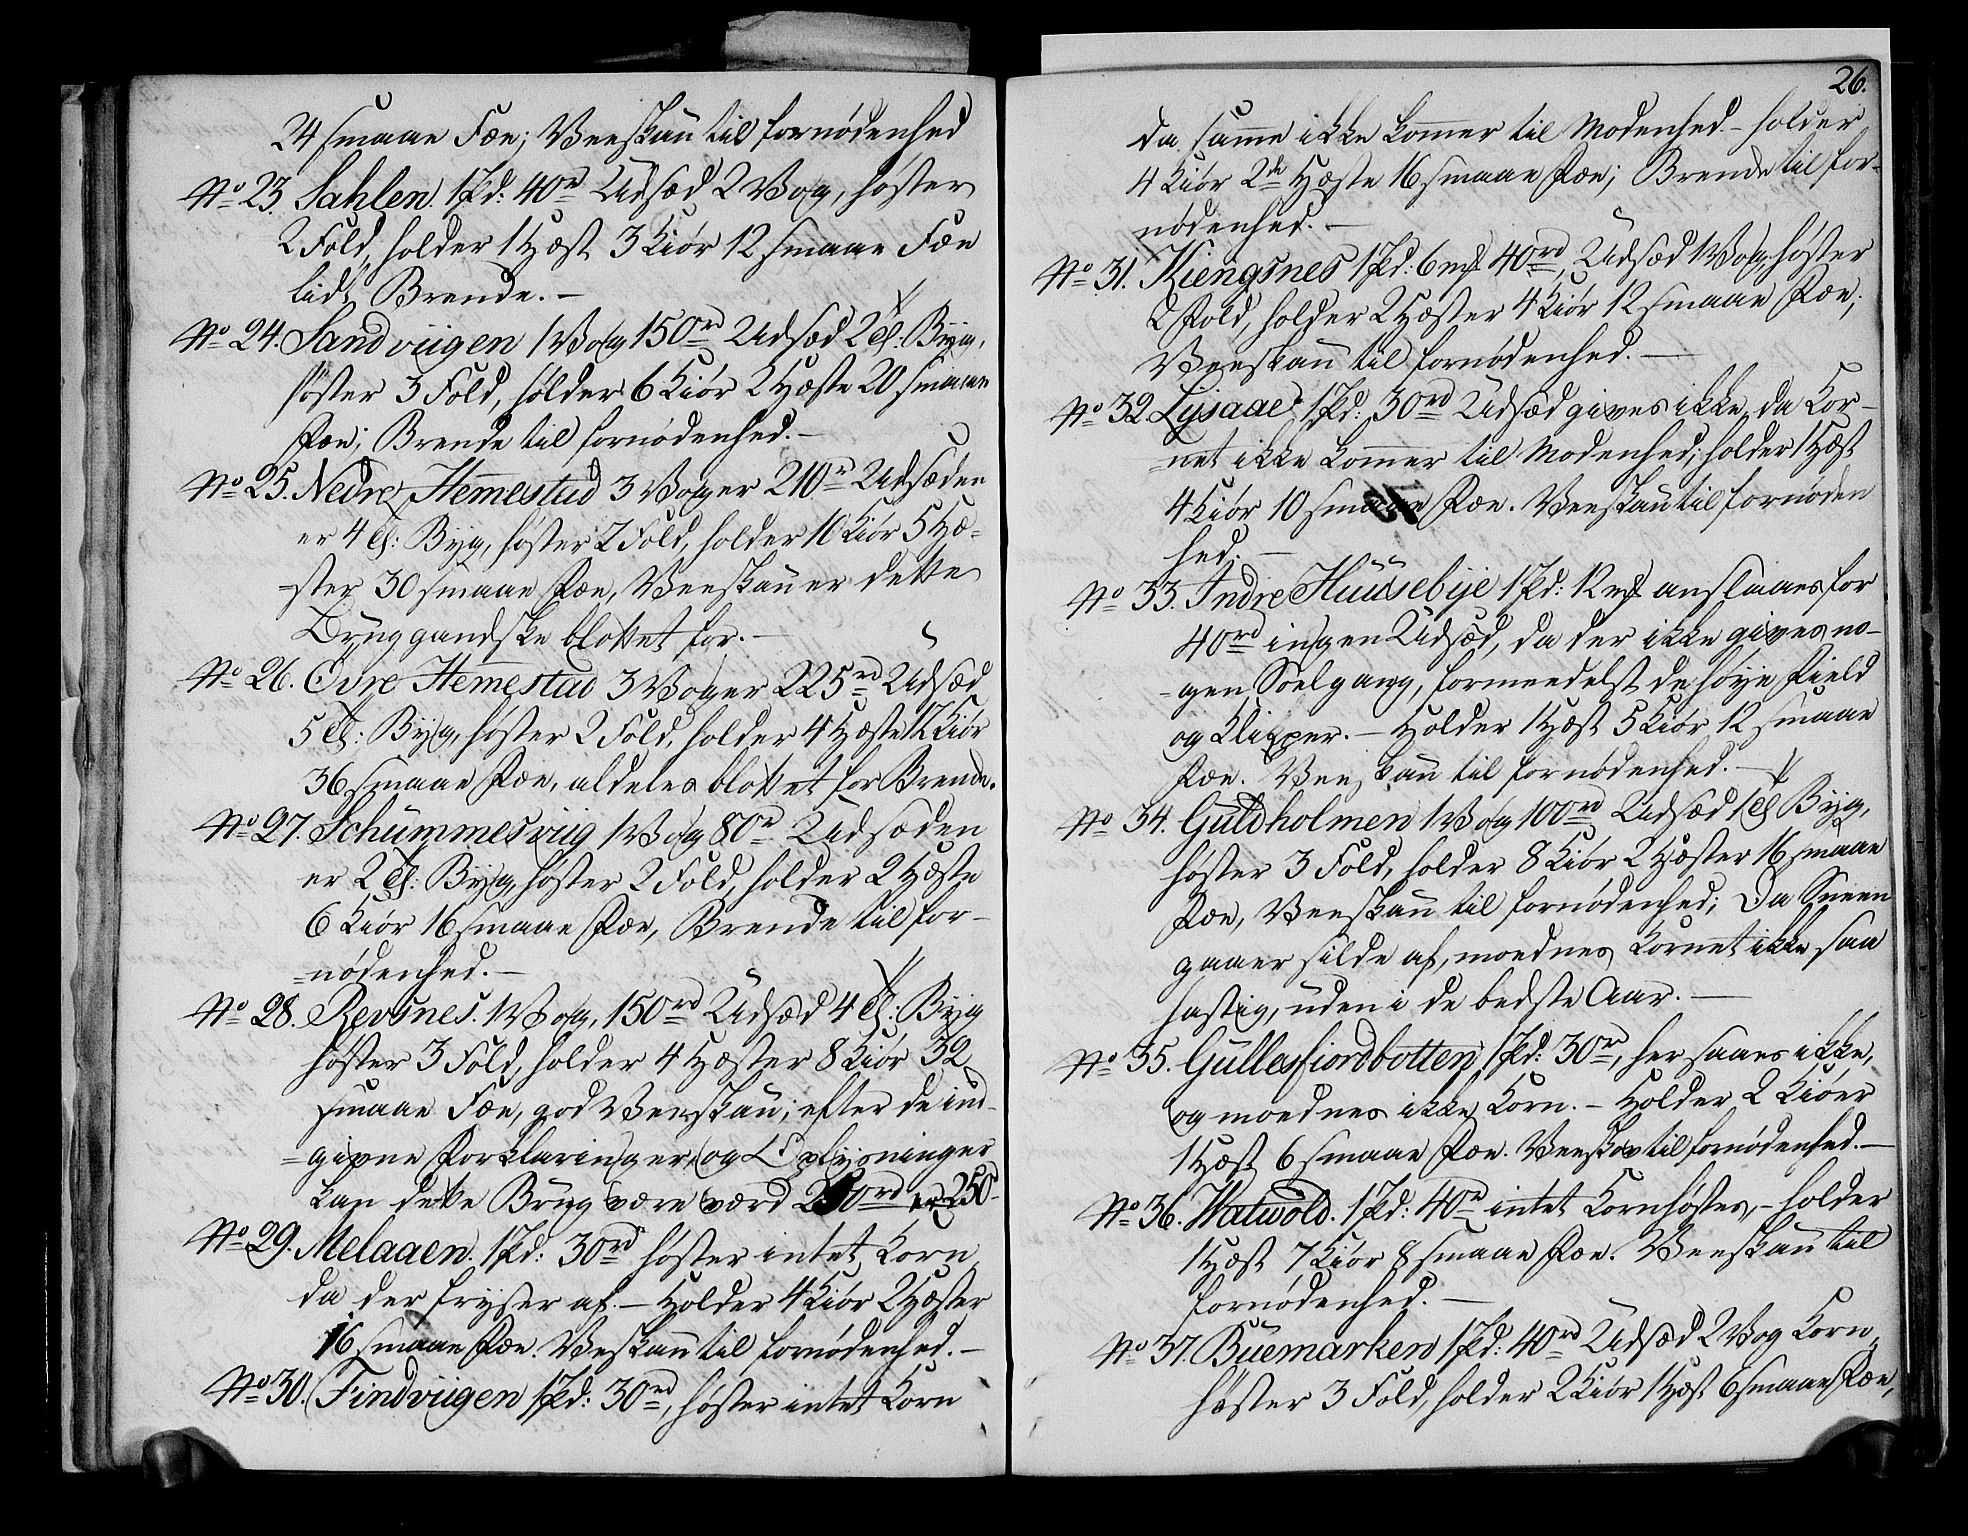 24 smaae Fæe; Veeskau til fornødenhed
No 23. Sahlen. 1 Pd: 40rd Udsæd 2 Vog, høster
2 Fold, holder 1 Hæst 3 Kiør 12 smaae Fæe
lidt Brende. –
No 24. Sandviigen 1 Vog 150rd Udsæd 2 Td: Byg,
høster 3 Fold, holder 6 Kiør 2 Hæste 20 smaae
Fæe; Brende til fornødenhed. –
No 25. Nedre Hemmestad 3 Voger 210rd Udsæden
er 4 Td: Byg, høster 2 Fold, holder 10 Kiør 5 Hæ-
-ster 30 smaae Fæe, Veeskau er dette
Brug gandske blottet for. –
No 26. Övre Hemmestad 3 Voger 225rd Udsæd
5 Td: Byg, høster 2 Fold, holder 4 Hæste 12 Kiør
36 smaae Fæe, aldeles blottet for Brende.
No 27. Schummesviig 1 Vog 80rd Udsæden
er 2 Td: Byg, høster 2 Fold, holder 2 Hæste
6 Kiør 16 smaae Fæe, Brende til for-
-nødenhed. –
No 28. Revsnes. 1 Vog, 150rd Udsæd 4 Td: Byg
høster 3 Fold, holder 4 Hæster 8 Kiør 32
smaae Fæe, god Veeskau; efter de ind-
-givne Forklaringer og Oplysninger
kan dette Brug være værd 250rd er 250-
No 29. Melaaen. 1 Pd: 30rd høster intet Korn
da der fryser af. – Holder 4 Kiør 2 Hæster
16 smaae Fæe. Veskau til fornødenhed. –
No 30. Findviigen 1 Pd: 30rd, høster intet Korn
26.
da samme ikke kommer til Modenhed – holder
4 Kiør 2de Hæste 16 smaae Fæe; Brende til for-
nødenhed. –
No 31. Kiengsnes 1 Pd: 6 mk 40rd, Udsæd 1 Vog, høster
2 Fold, holder 2 Hæster 4 Kiør 12 smaae Fæe;
Veeskau til fornødenhed. –
No 32. Lysaae 1 Pd: 30rd Udsæd gives ikke, da Kor-
-net ikke kommer til Modenhed; holder 1 Hæst
4 Kiør 10 smaae Fæe. Veeskau til fornøden
hed. –
No 33. Indre Huusebye 1 Pd: 12 mk anslaaes for
40rd ingen Udsæd, da der ikke gives no-
-gen Soelgang, formeedelst de høye Field
og Klipper. – Holder 1 Hæst 5 Kiør 12 smaae
Fæe. Veeskau til fornødenhed. –
No 34. Guldholmen 1 Vog 100rd Udsæd 1 Td Byg,
høster 3 Fold, holder 8 Kiør 2 Hæster 16 smaae
Fæe, Veeskau til fornødenhed; Da Sneen
gaaer silde af, moednes Kornet ikke saa
hastig, uden i de bedste Aar. –
No 35. Gullesfiordbotten 1 Pd: 30rd, her saaes ikke,
og moednes ikke Korn. – Holder 2 Kiøer
1 Hæst 6 smaae Fæe. Veeskov til fornødenhed. –
No 36. Watwold. 1 Pd: 40rd intet Korn høstes, – holder
1 Hæst 7 Kiør 8 smaae Fæe. Veeskau til
fornødenhed. –
No 37. Buemarken 1 Pd: 40rd Udsæd 2 Vog Korn,
høster 3 Fold, holder 2 Kiør 1 Hæst 6 smaae Fæe,